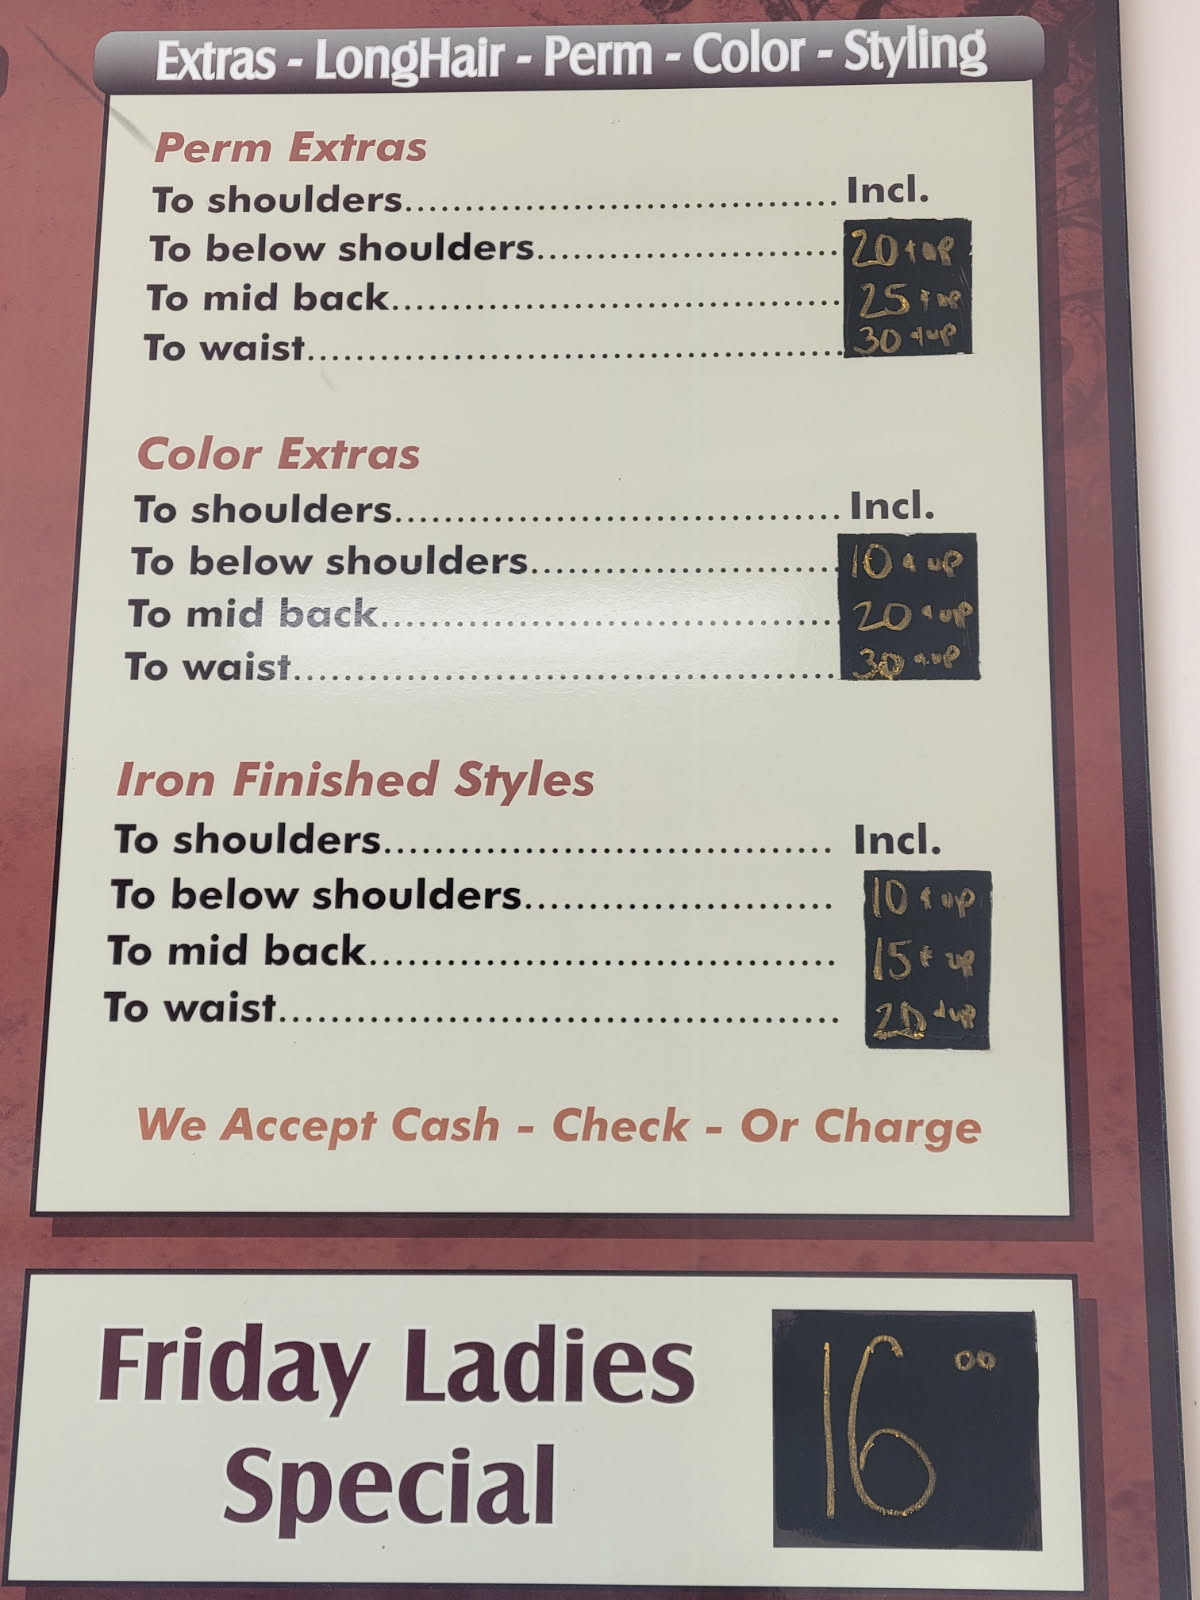 Extras - LongHair - Perm - Color - Styling
Perm Extras
To shoulders.................................... Incl.
To below shoulders......................... 20 + up
To mid back..................................... 25 + up
To waist............................................ 30 + up
Color Extras
To shoulders.................................... Incl.
To below shoulders......................... 10 + up
To mid back..................................... 20 + up
To waist............................................ 30 + up
Iron Finished Styles
To shoulders.................................... Incl.
To below shoulders......................... 10 + up
To mid back..................................... 15 + up
To waist............................................ 20 + up
We Accept Cash - Check - Or Charge
Friday Ladies
Special
16 00